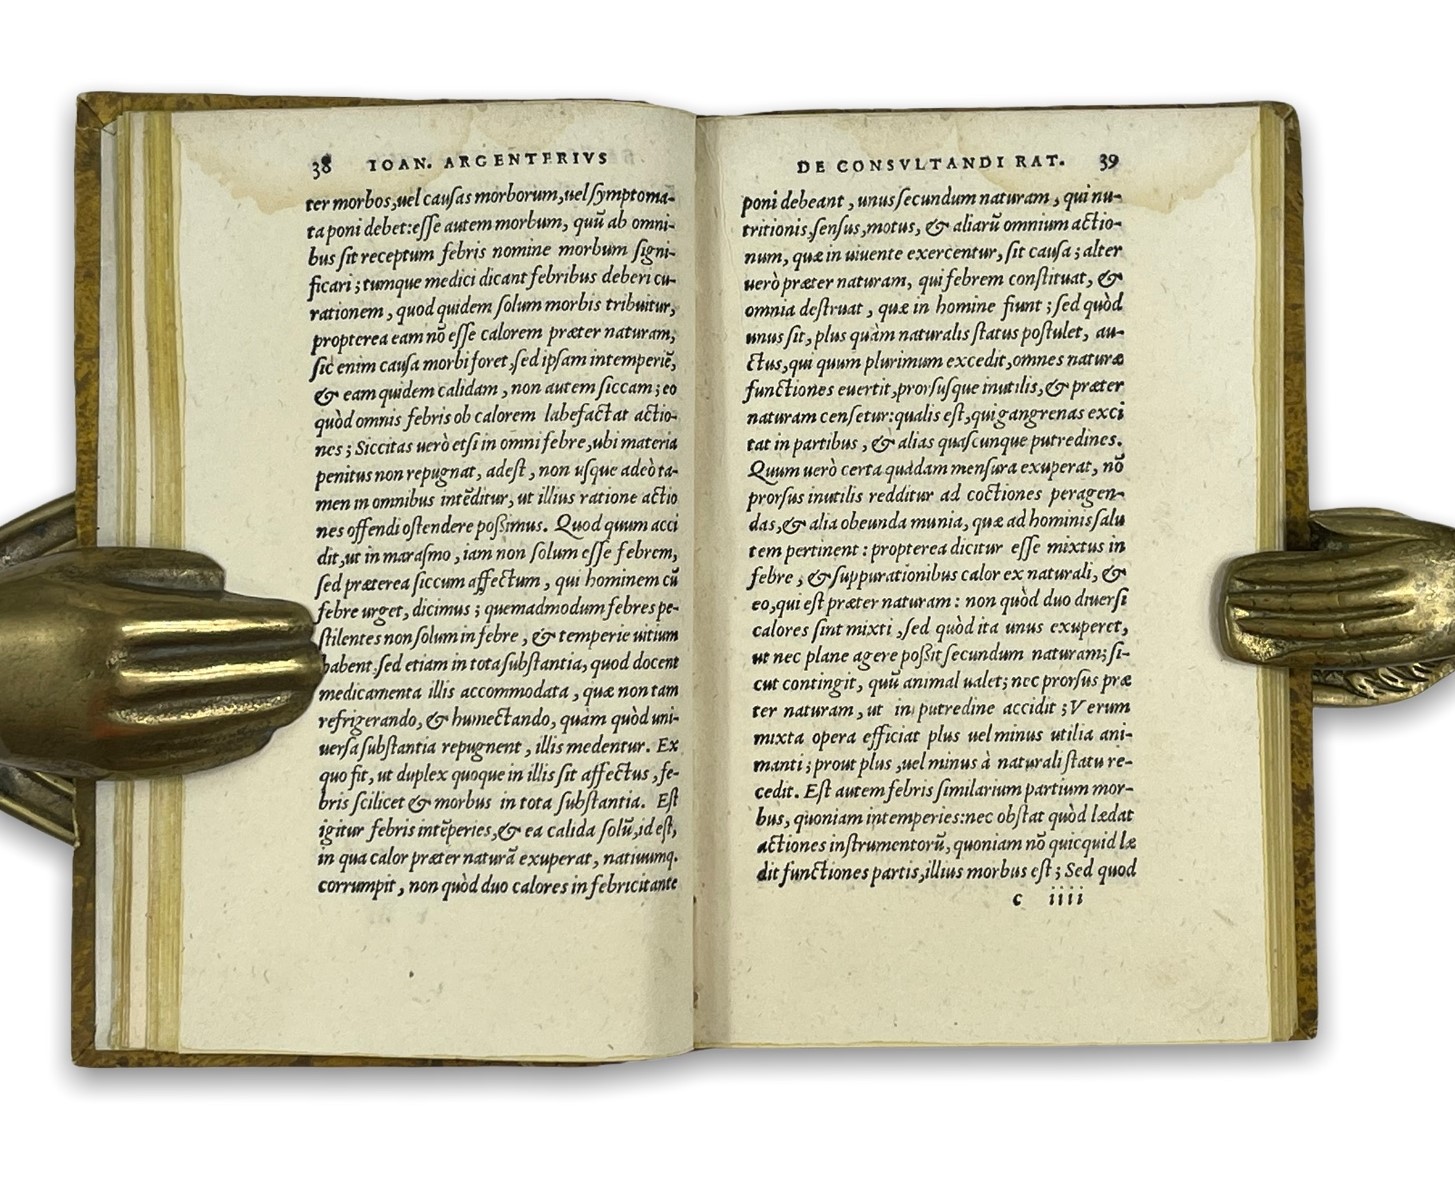 38 IOAN. ARGENTERIVS
ter morbos, uel causas morborum, uel symptoma-
ta poni debet: esse autem morbum, quū ab omni-
bus sit receptum febris nomine morbum signi-
ficari; tumque medici dicant febribus deberi cu-
rationem, quod quidem solum morbis tribuitur,
propterea eam nō esse calorem præter naturam,
sic enim causa morbi foret, sed ipsam intemperiē,
& eam quidem calidam, non autem siccam; eo
quòd omnis febris ob calorem labefactat actio-
nes; Siccitas uerò etsi in omni febre, ubi materia
penitus non repugnat, adest, non usque adeò ta-
men in omnibus intēditur, ut illius ratione actio
nes offendi ostendere possimus. Quod quum acci
dit, ut in marasmo, iam non solum esse febrem,
sed præterea siccum affectum, qui hominem cū
febre urget, dicimus; quemadmodum febres pe-
stilentes non solum in febre, & temperie uitium
habent, sed etiam in tota substantia, quod docent
medicamenta illis accommodata, quæ non tam
refrigerando, & humectando, quàm quòd uni-
uersa substantia repugnent, illis medentur. Ex
quo fit, ut duplex quoque in illis sit affectus, fe-
bris scilicet & morbus in tota substantia. Est
igitur febris intēperies, & ea calida solū, id est,
in qua calor præter naturā exuperat, natiuumq.
corrumpit, non quòd duo calores in febricitante
DE CONSVLTANDI RAT. 39
poni debeant, unus secundum naturam, qui nu-
tritionis, sensus, motus, & aliarū omnium actio-
num, quæ in uiuente exercentur, sit causa; alter
uerò præter naturam, qui febrem constituat, &
omnia destruat, quæ in homine fiunt; sed quòd
unus sit, plus quàm naturalis status postulet, au-
ctus, qui quum plurimum excedit, omnes naturæ
functiones euertit, prorsusque inutilis, & præter
naturam censetur: qualis est, qui gangrenas exci
tat in partibus, & alias quascunque putredines.
Quum uerò certa quadam mensura exuperat, nō
prorsus inutilis redditur ad coctiones peragen-
das, & alia obeunda munia, quæ ad hominis salu
tem pertinent: propterea dicitur esse mixtus in
febre, & suppurationibus calor ex naturali, &
eo, qui est præter naturam: non quòd duo diuersi
calores sint mixti, sed quòd ita unus exuperet,
ut nec plane agere possit secundum naturam; si-
cut contingit, quū animal ualet; nec prorsus præ
ter naturam, ut in putredine accidit; Verum
mixta opera efficiat plus uel minus utilia ani-
manti; prout plus, uel minus à naturali statu re-
cedit. Est autem febris similarium partium mor-
bus, quoniam intemperies: nec obstat quòd lædat
actiones instrumentorū, quoniam nō quicquid læ
dit functiones partis, illius morbus est; Sed quod
c iiii